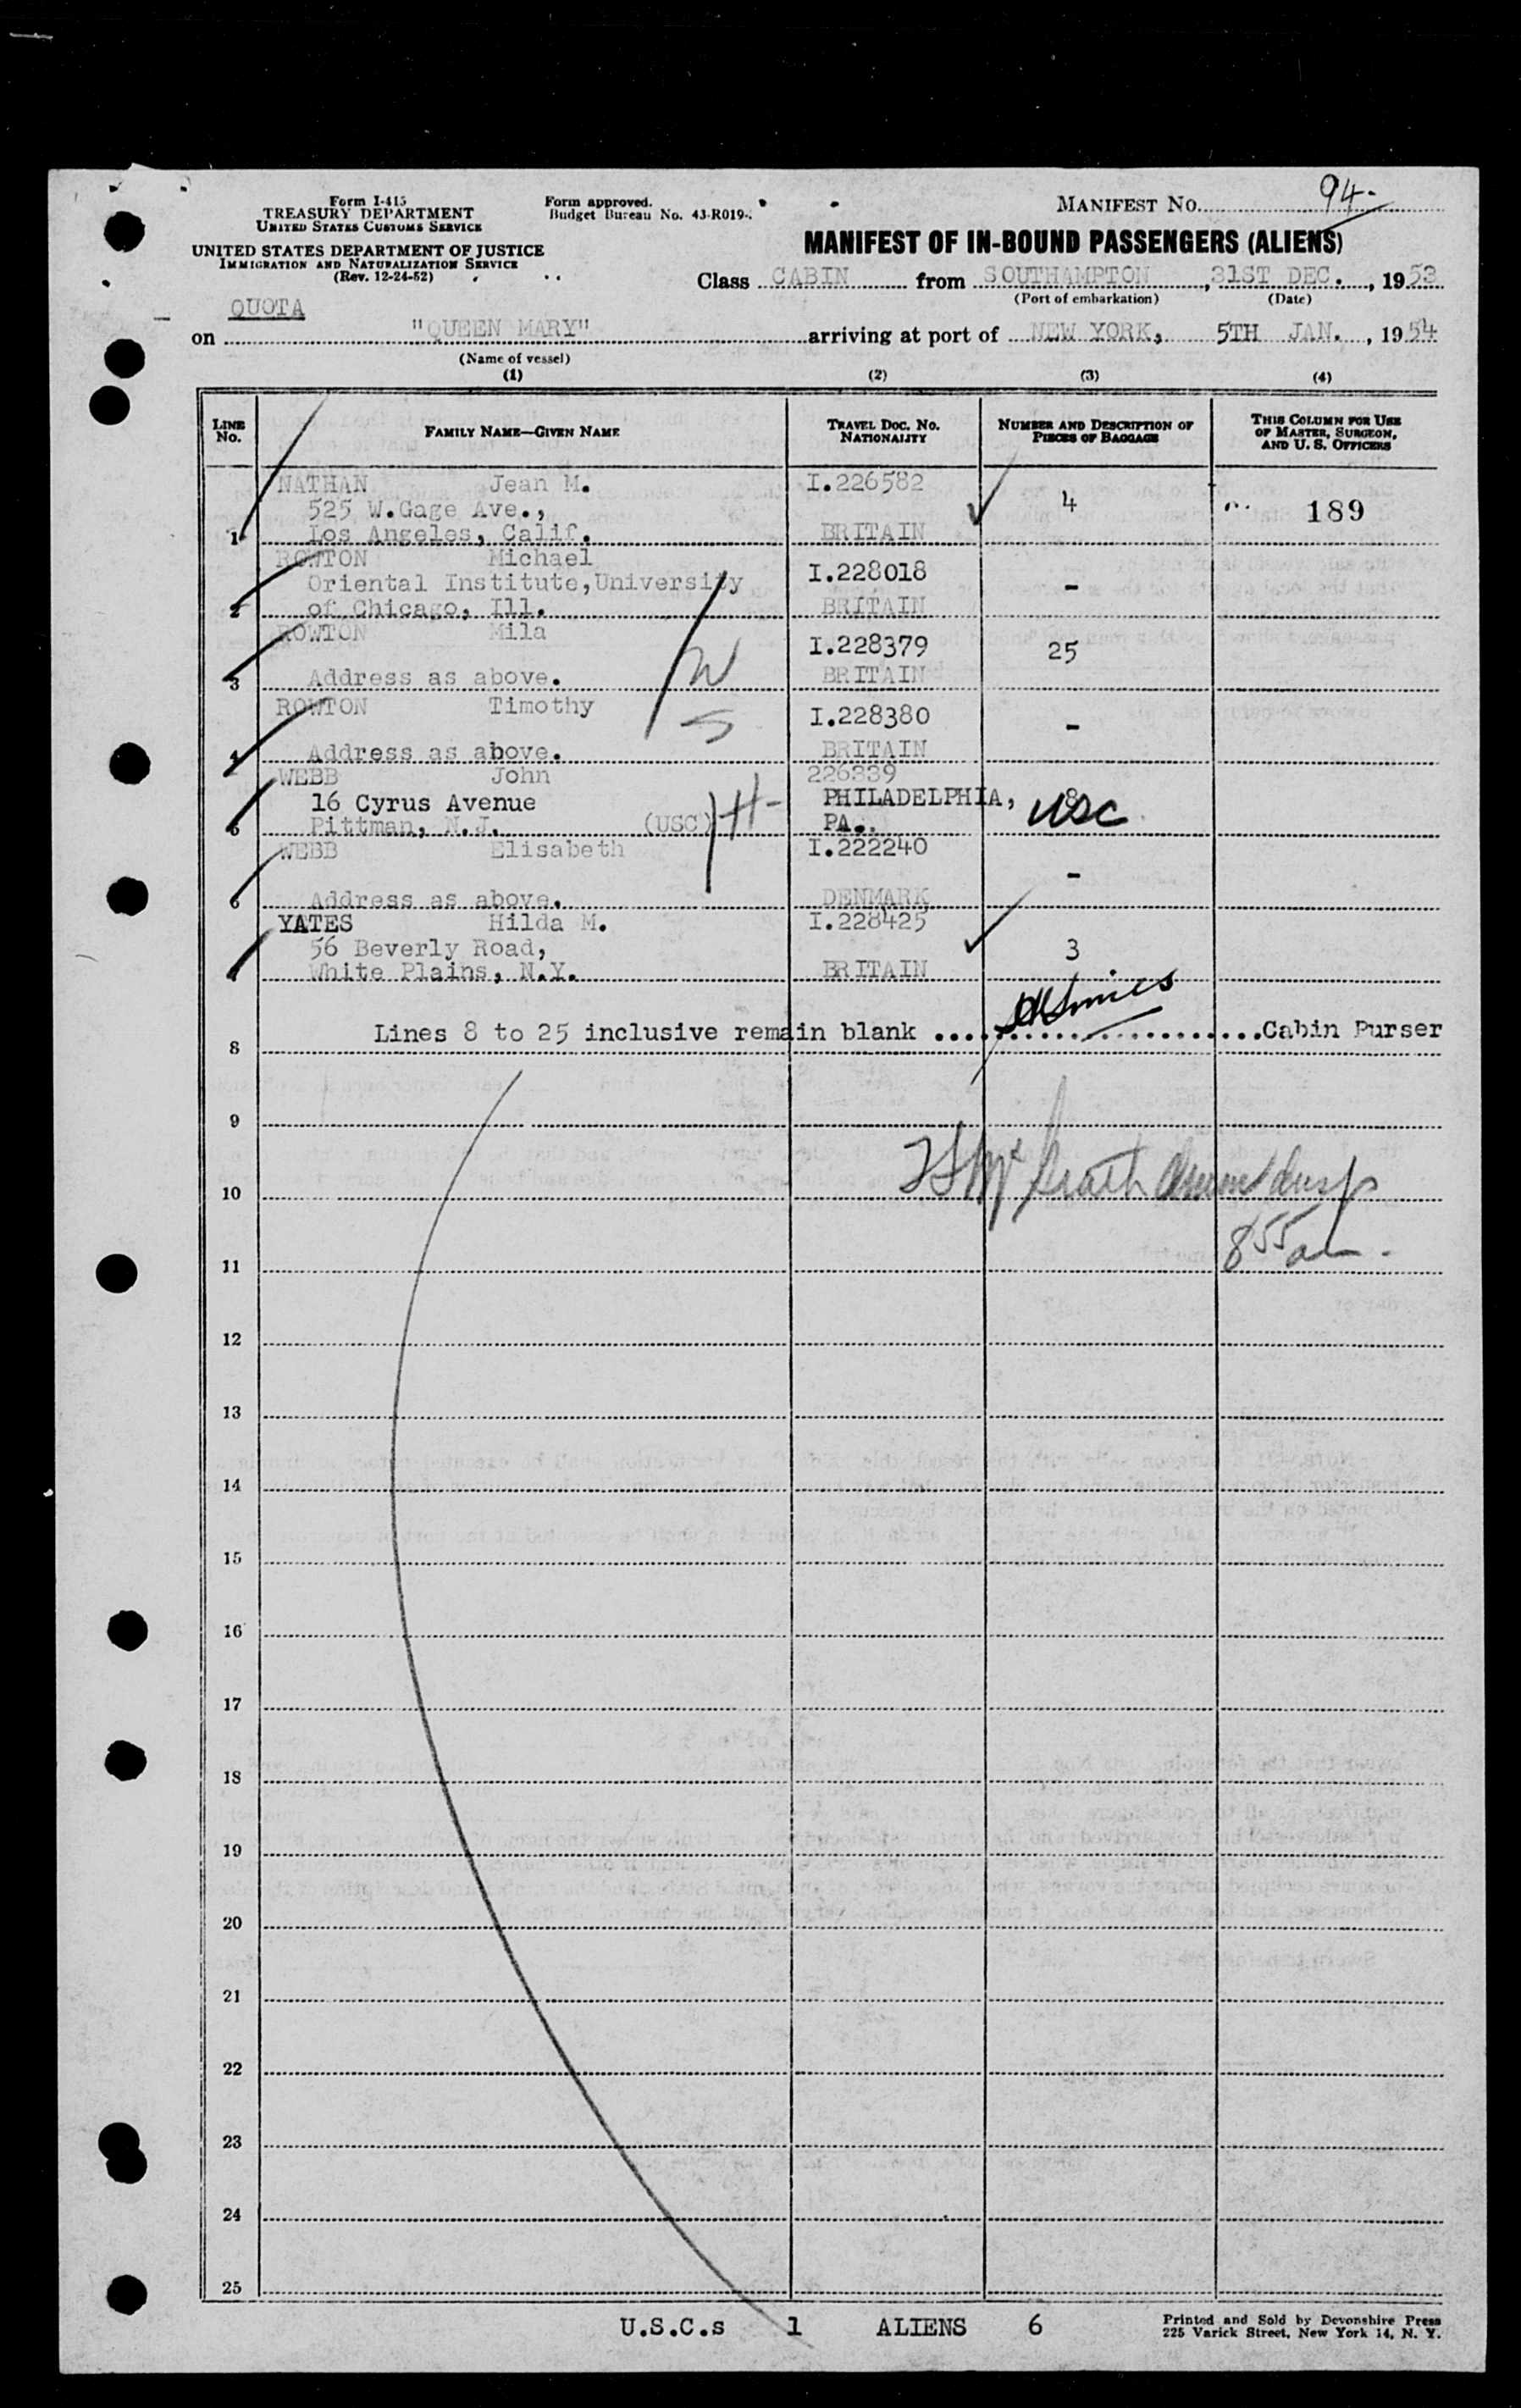 Form I-415
TREASURY DEPARTMENT
UNITED STATES CUSTOMS SERVICE
UNITED STATES DEPARTMENT OF JUSTICE
IMMIGRATION AND NATURALIZATION SERVICE
(Rev. 12-24-52)
Form approved.
Budget Bureau No. 43-R019-.
MANIFEST NO. 94-
MANIFEST OF IN-BOUND PASSENGERS (ALIENS)
Class CABIN from SOUTHAMPTON, 31ST DEC., 1953
(Port of embarkation) (Date)
QUOTA
on "QUEEN MARY" arriving at port of NEW YORK, 5TH JAN., 1954
(Name of vessel)
(1) (2) (3) (4)
LINE NO. FAMILY NAME—GIVEN NAME TRAVEL DOC. NO. NATIONALITY NUMBER AND DESCRIPTION OF PIECES OF BAGGAGE THIS COLUMN FOR USE OF MASTER, SURGEON, AND U. S. OFFICERS
NATHAN Jean M. I.226582
525 W.Gage Ave., 4 189
1 Los Angeles, Calif. BRITAIN
ROWTON Michael
Oriental Institute,University I.228018 -
2 of Chicago, Ill. BRITAIN
ROWTON Mila
I.228379 25
W
3 Address as above. BRITAIN
ROWTON Timothy
I.228380 -
S
4 Address as above. BRITAIN
WEBB John 226339
16 Cyrus Avenue PHILADELPHIA, 8
H- USC
5 Pittman, N.J. (USC) PA..
WEBB Elisabeth I.222240
-
6 Address as above. DENMARK
YATES Hilda M. I.228425
56 Beverly Road, 3
7 White Plains, N.Y. BRITAIN
Lines 8 to 25 inclusive remain blank ........................Cabin Purser
8
9
10
8 55 am -
11
12
13
14
15
16
17
18
19
20
21
22
23
24
25
U.S.C.s 1 ALIENS 6
Printed and Sold by Devonshire Press
225 Varick Street, New York 14, N. Y.